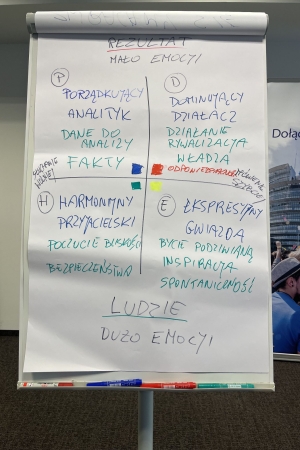 REZULTAT
MAŁO EMOCJI
P
PORZĄDKUJĄCY
ANALITYK
DANE DO
ANALIZY
FAKTY
D
DOMINUJĄCY
DZIAŁACZ
DZIAŁANIE
RYWALIZACJA
WŁADZA
ODPOWIEDZIALNOŚĆ
H
HARMONIJNY
PRZYJACIELSKI
POCZUCIE BLISKOŚCI
BEZPIECZEŃSTWA
E
EKSPRESYJNY
GWIAZDA
BYCIE PODZIWIANĄ
INSPIRACJA
SPONTANICZNOŚĆ
LUDZIE
DUŻO EMOCJI
Dołąc